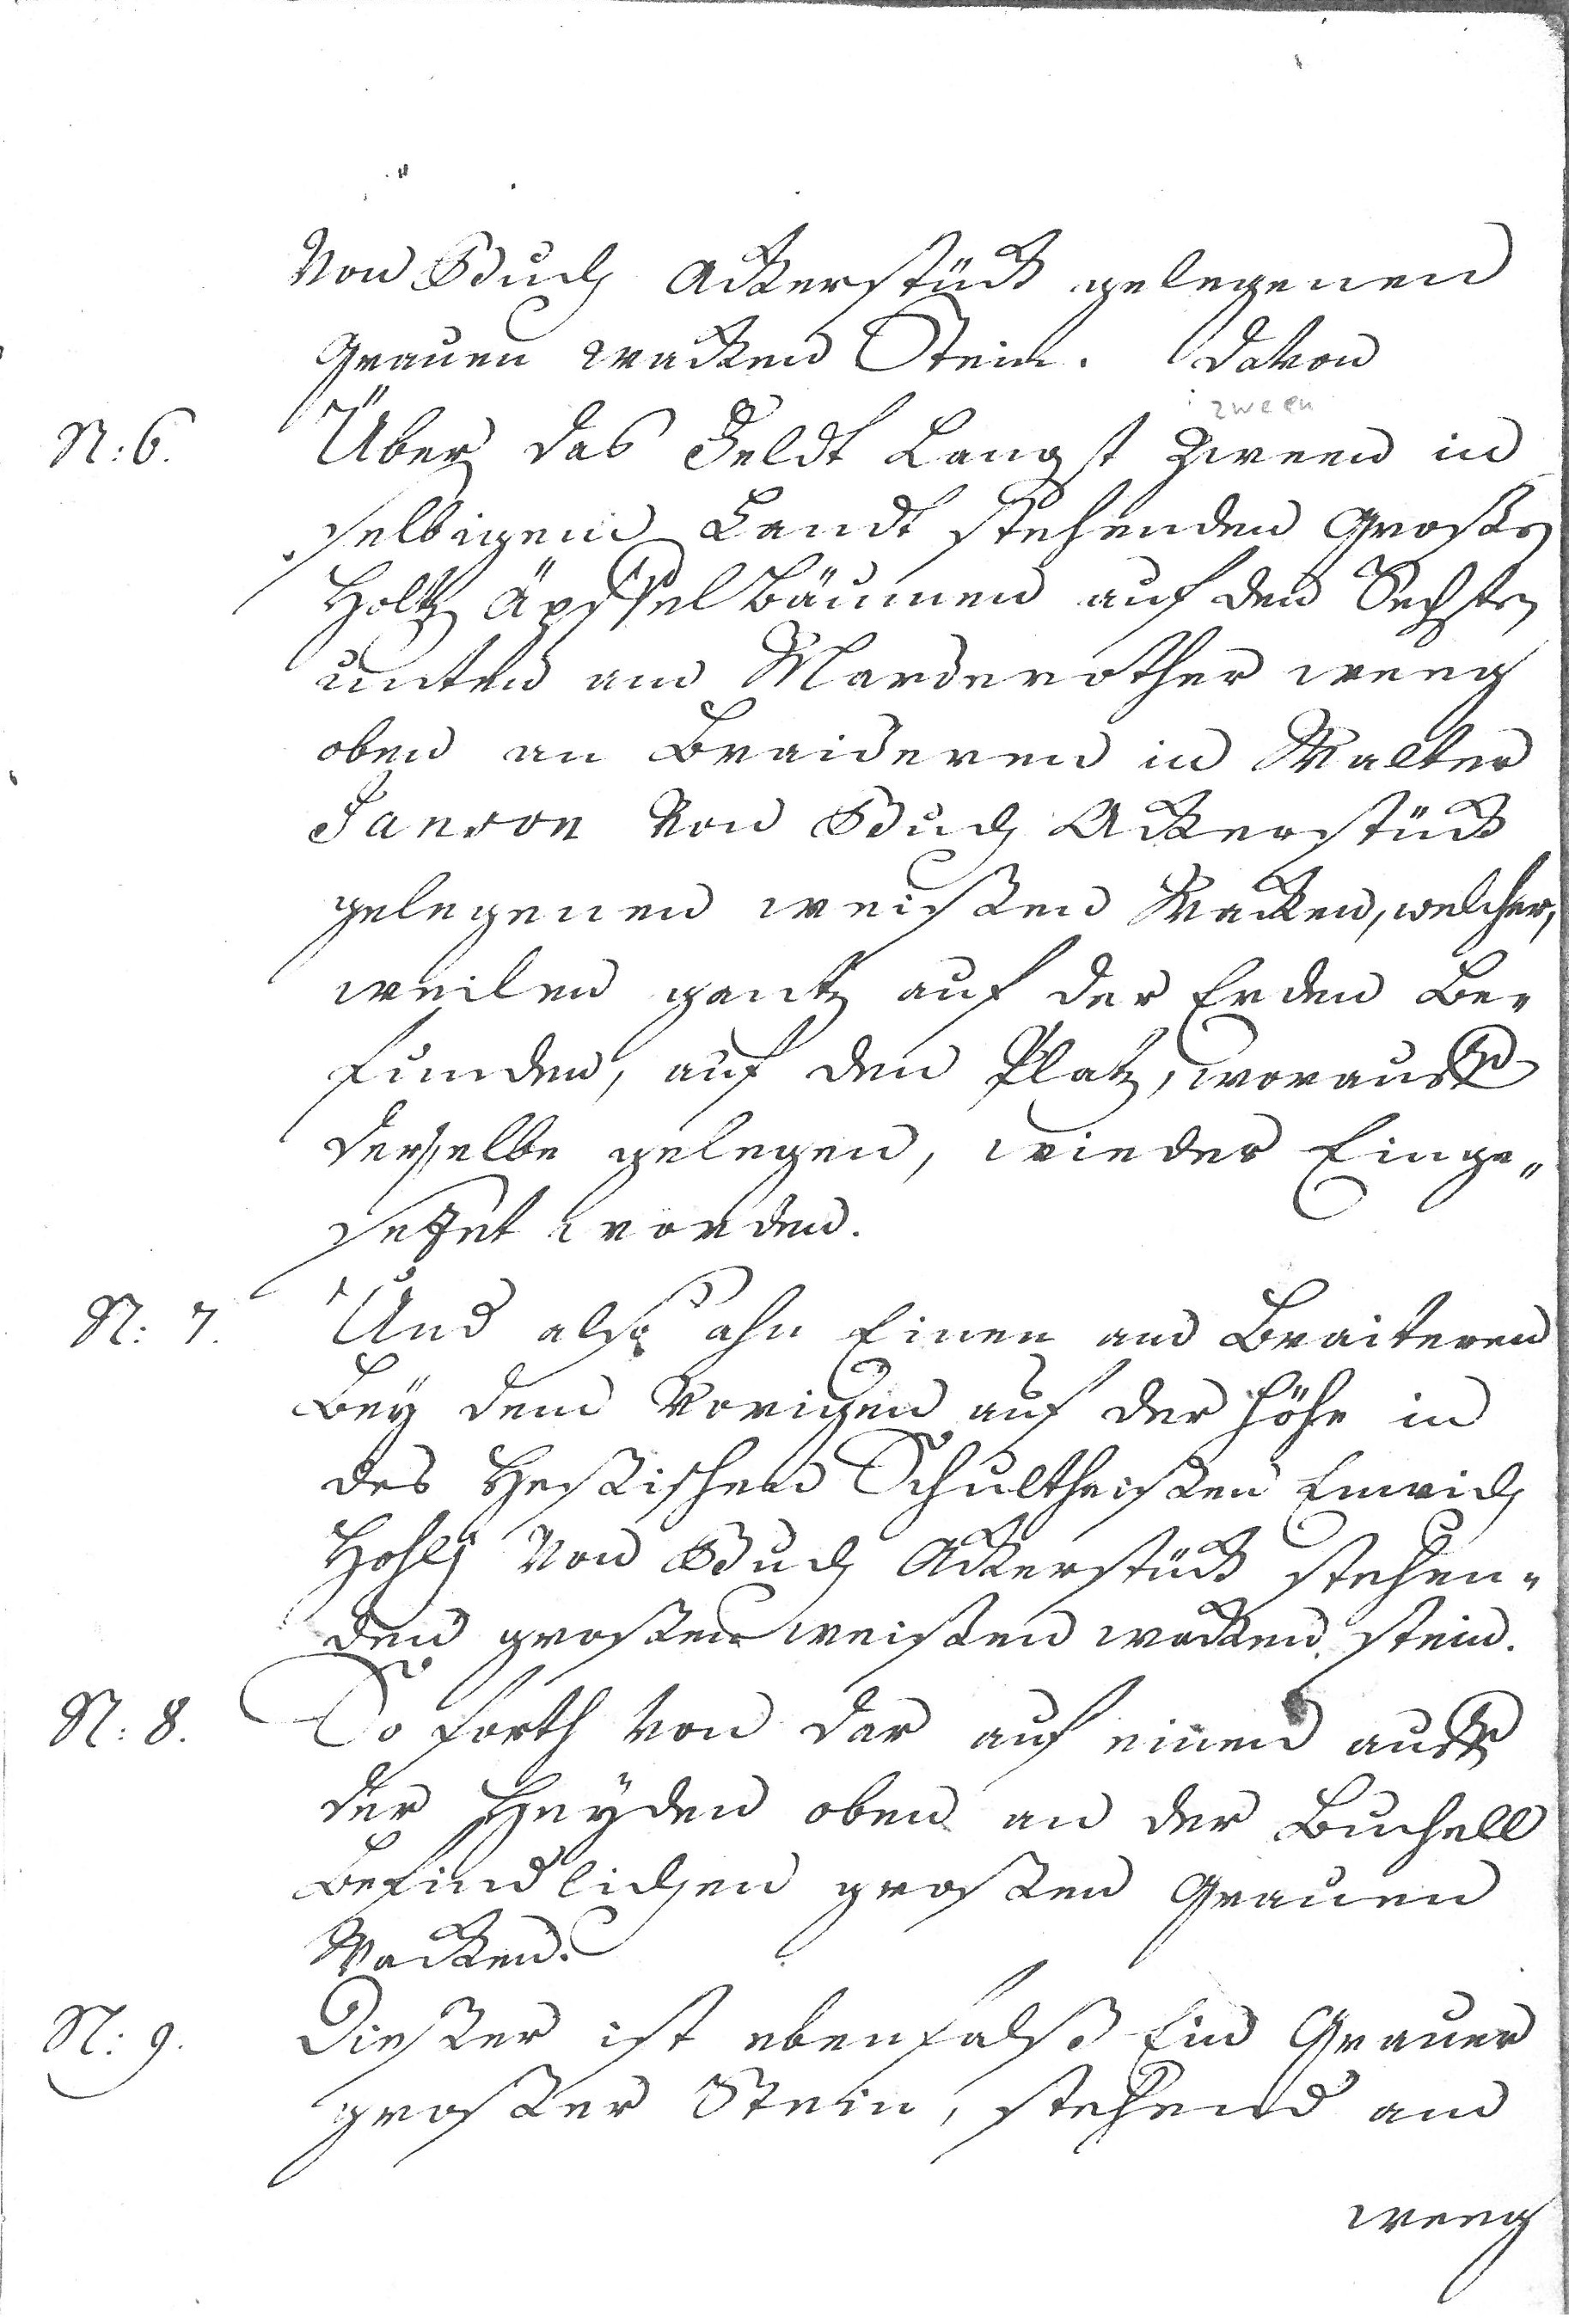 Von Buch Ackerstück gelegenen
Grauen wacken Stein. Davon
zween
N: 6. Über das Feldt Langst Zween in
selbigem Landt stehenden Großen
Holtz Äpffel Bäumen auf den Sechsten
unten am Marderother weeg
oben an Braideren in Walter
Janson Von Buch Ackerstück
gelegenen weißen Wacken, welcher,
weilen gantz auf der Erden Be„
funden, auf den Platz, worauff
derselbe gelegen, wieder Einge„
setzet worden.
N: 7. Und also ahn Einen am Braiteren
Bey dem Vorigen auf der Höhe in
des Heßischen Schultheißen Emrich
Von Buch Ackerstück stehen„
den großen weißen wacken stein.
N: 8. So forth von dar auf einen auff
der Heyden oben an der Buchell
Befindlichen großen Grauen
Wacken.
N: 9. Dießer ist ebenfalß Ein Grauer
großer Stein, stehend am
weeg